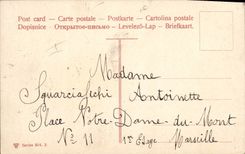 Post card - Carte postale - Postkarte - Cartolina postale
Dopisnice - Открытое письмо - Levelező-Lap - Briefkaart.
Madame
Sguarciafichi Antoinette
Place Notre-Dame-du-Mont
N° 11 1er Etage Marseille
Serie